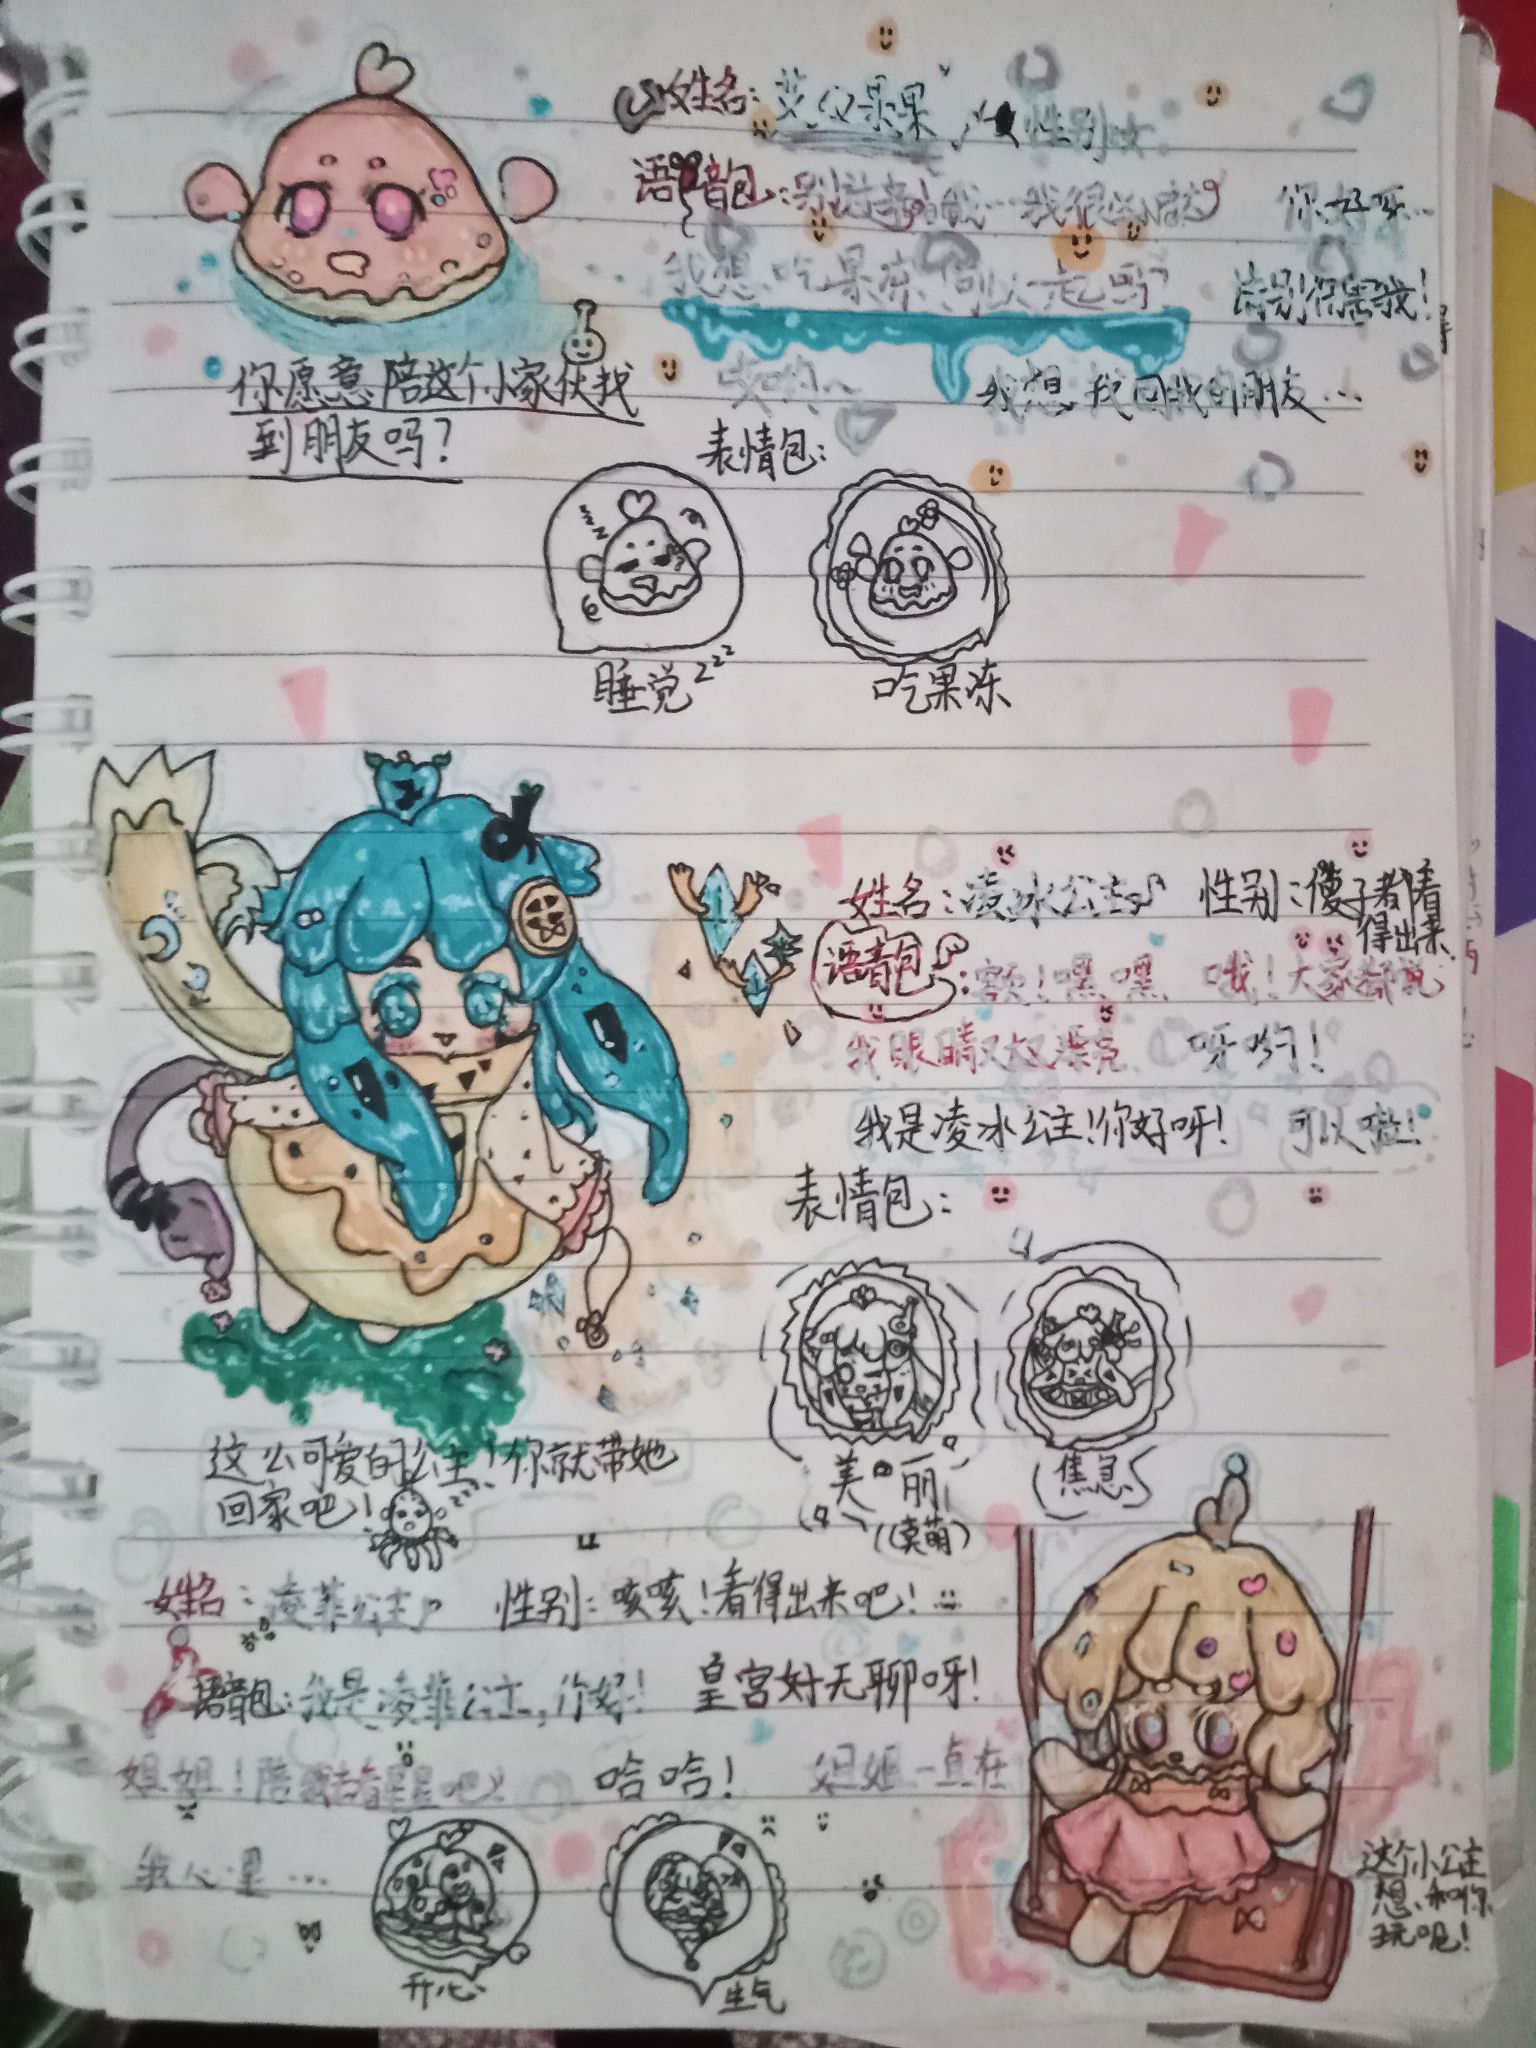 姓名：艾父果果 性别女
语音包：别过来！我…我很凶哒 你好呀…
我想吃果冻可以一起吗？ 请别伤害我！
哎哟～ 我想找回我的朋友…
你愿意陪这个小家伙找
到朋友吗？
表情包：
睡觉zzz
吃果冻
姓名：凌冰公主 性别：傻子都看
得出来
语音包：额！嘿嘿 哦！大家都说
我眼睛又大又漂亮 呀哟！
我是凌冰公主！你好呀！ 可以啦！
表情包：
美丽
(卖萌)
焦急
这么可爱的公主！你就带她
回家吧！
zzz
姓名：凌菲公主 性别：咳咳！看得出来吧！
语音包：我是凌菲公主，你好！ 皇宫好无聊呀！
姐姐！陪我去看星星吧 哈哈！ 姐姐一直在
我心里…
开心
生气
这个小公主
想和你
玩呢！